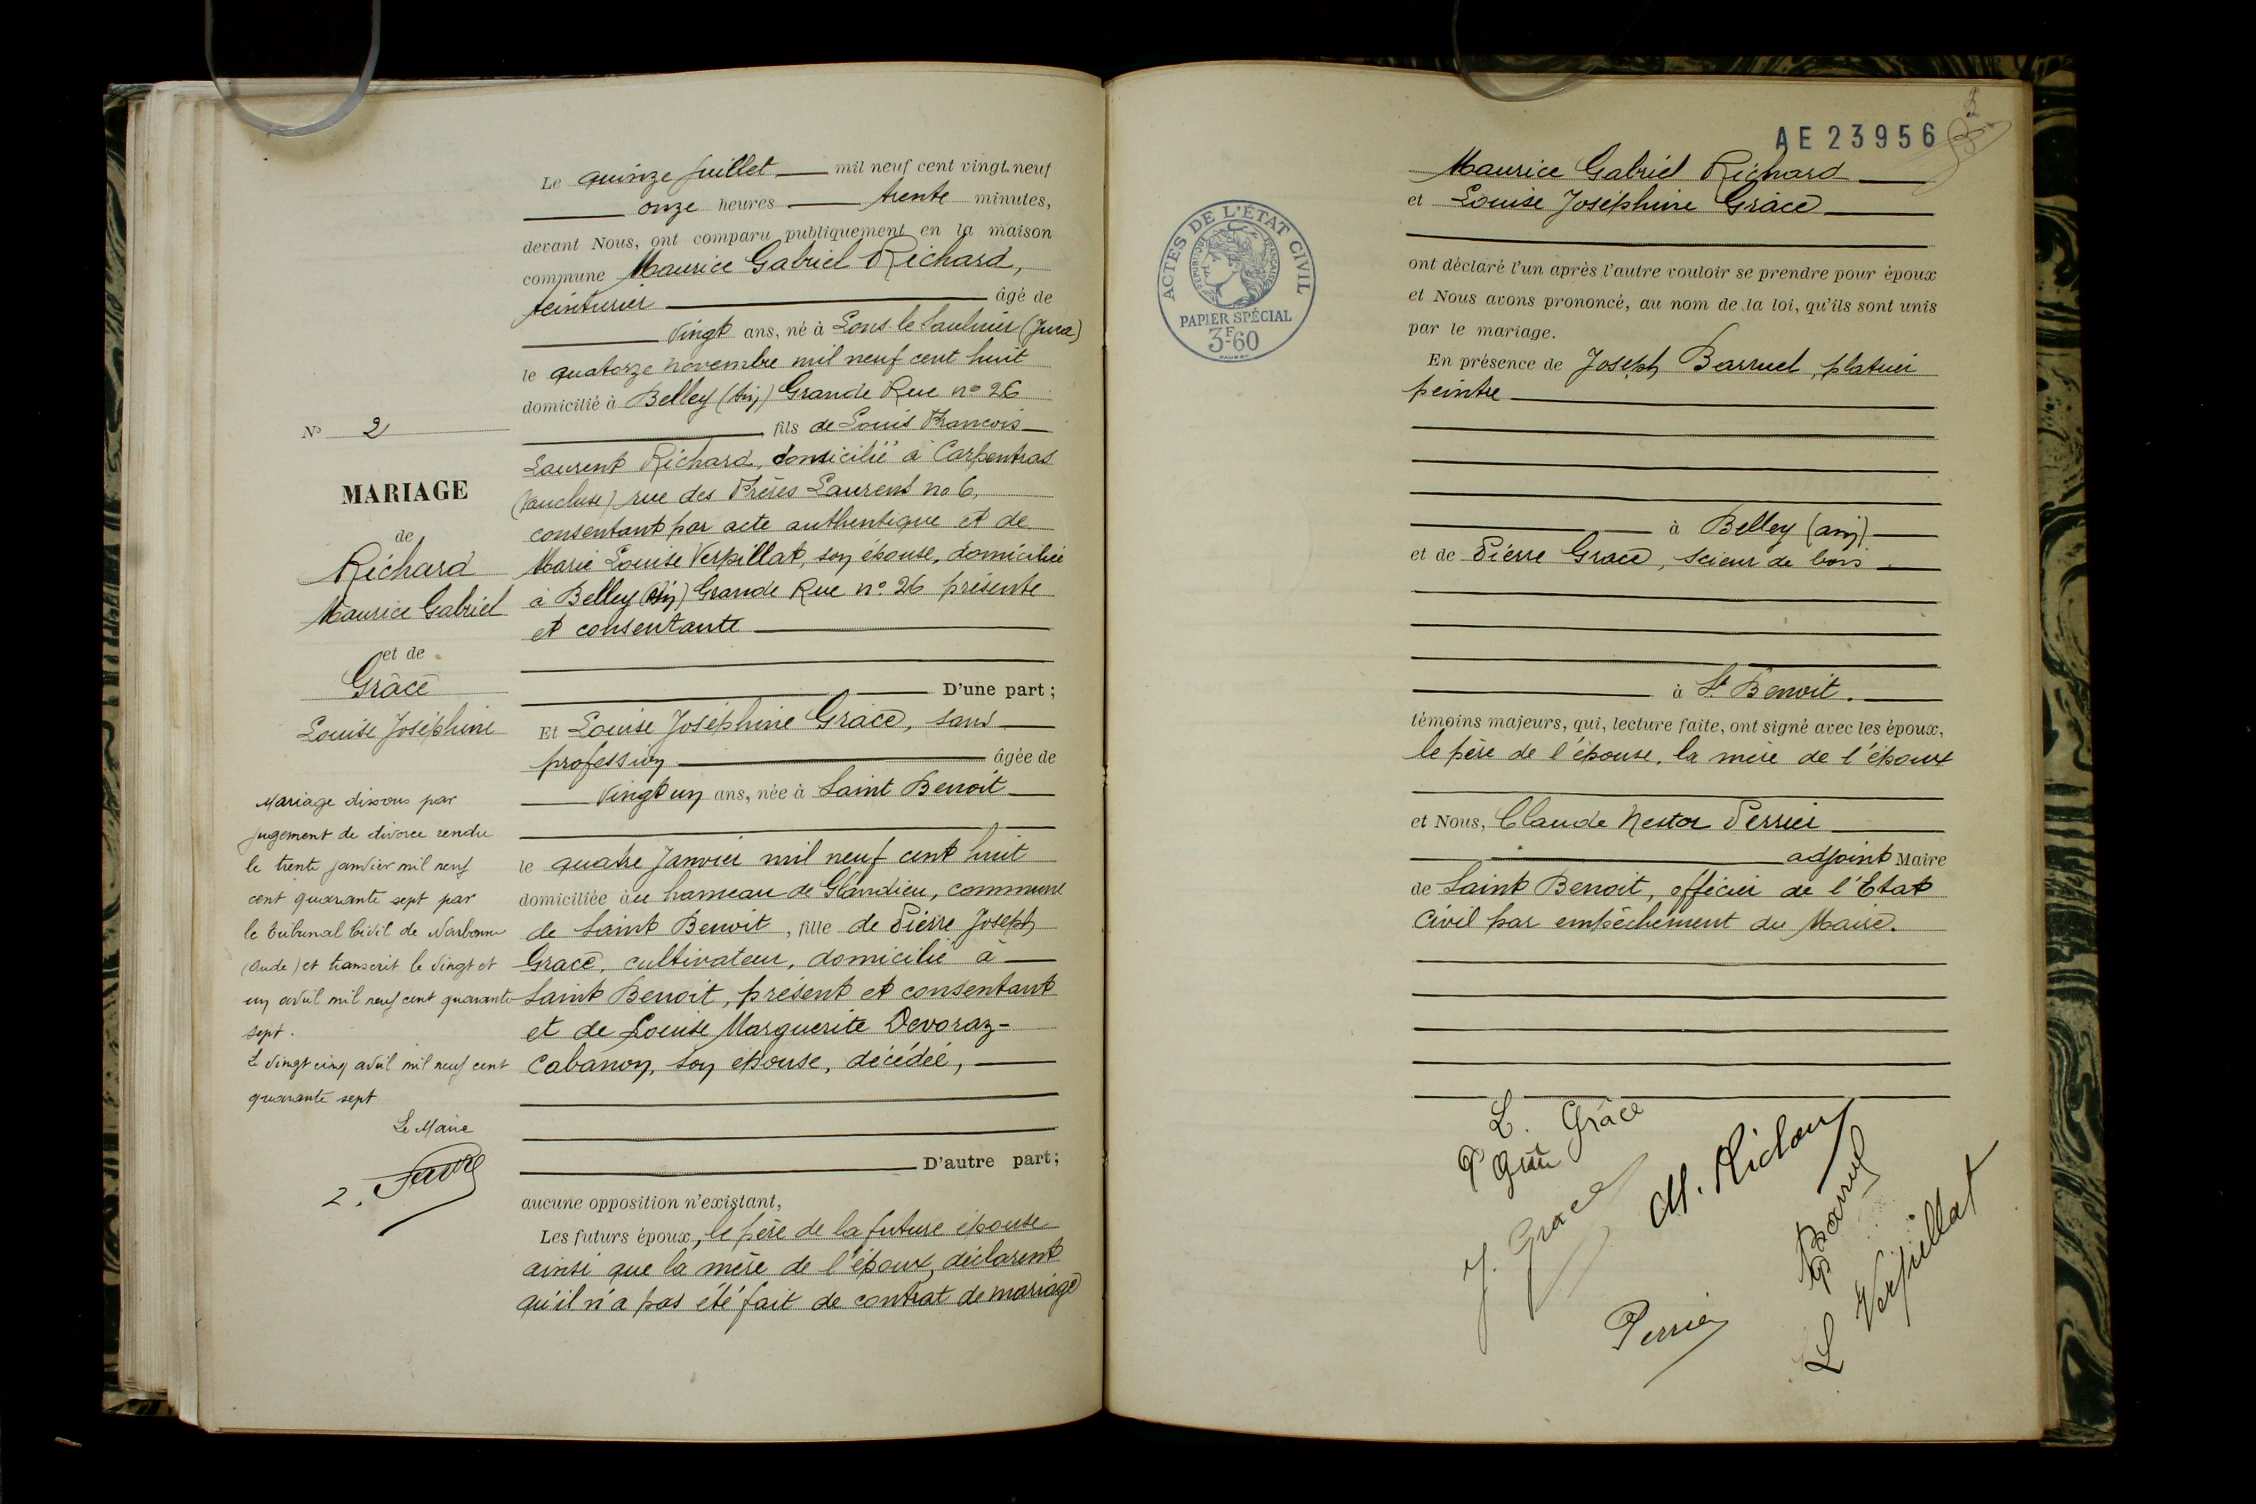 N° 2
MARIAGE
de
Richard
Maurice Gabriel
et de
Grâce
Louise Joséphine
Mariage dissous par
jugement de divorce rendu
le trente janvier mil neuf
cent quarante sept par
le tribunal Civil de Narbonne
(Aude) et transcrit le vingt et
un avril mil neuf cent quarante
sept.
Le vingt cinq avril mil neuf cent
quarante sept
Le Maire
2.
Le quinze Juillet mil neuf cent vingt-neuf
onze heures trente minutes,
devant Nous, ont comparu publiquement en la maison
commune Maurice Gabriel Richard,
teinturier âgé de
vingt ans, né à Lons le Saulnier (Jura)
le quatorze novembre mil neuf cent huit
domicilié à Belley (Ain) Grande Rue n° 26
fils de Louis François
Laurent Richard, domicilié à Carpentras
(Vaucluse) rue des Frères Laurens no 6,
consentant par acte authentique et de
Marie Louise Verpillat, son épouse, domiciliée
à Belley (Ain) Grande Rue n° 26 présente
et consentante
D'une part ;
Et Louise Joséphine Grâce, sans
profession âgée de
vingt un ans, née à Saint Benoit
le quatre Janvier mil neuf cent huit
domiciliée au hameau de Glandieu, commune
de Saint Benoit, fille de Pierre Joseph
Grâce, cultivateur, domicilié à
Saint Benoit, présent et consentant
et de Louise Marguerite Devoraz-
Cabanon, son épouse, décédée,
D'autre part ;
aucune opposition n'existant,
Les futurs époux, le père de la future épouse
ainsi que la mère de l'époux, déclarent
qu'il n'a pas été fait de contrat de mariage
ACTES DE L'ÉTAT CIVIL
RÉPUBLIQUE FRANÇAISE
PAPIER SPÉCIAL
3F60
AE23956
Maurice Gabriel Richard
et Louise Joséphine Grâce
ont déclaré l'un après l'autre vouloir se prendre pour époux
et Nous avons prononcé, au nom de la loi, qu'ils sont unis
par le mariage.
En présence de Joseph Barruel, platrier
peintre
à Belley (Ain)
et de Pierre Grâce, scieur de bois
à St Benoit.
témoins majeurs, qui, lecture faite, ont signé avec les époux,
le père de l'épouse, la mère de l'époux
et Nous, Claude Nestor Perrier
adjoint Maire
de Saint Benoit, officier de l'Etat
Civil par empêchement du Maire.
L. Grâce
M. Richard
J. Grace
Barruel
Perrier
L Verpillat